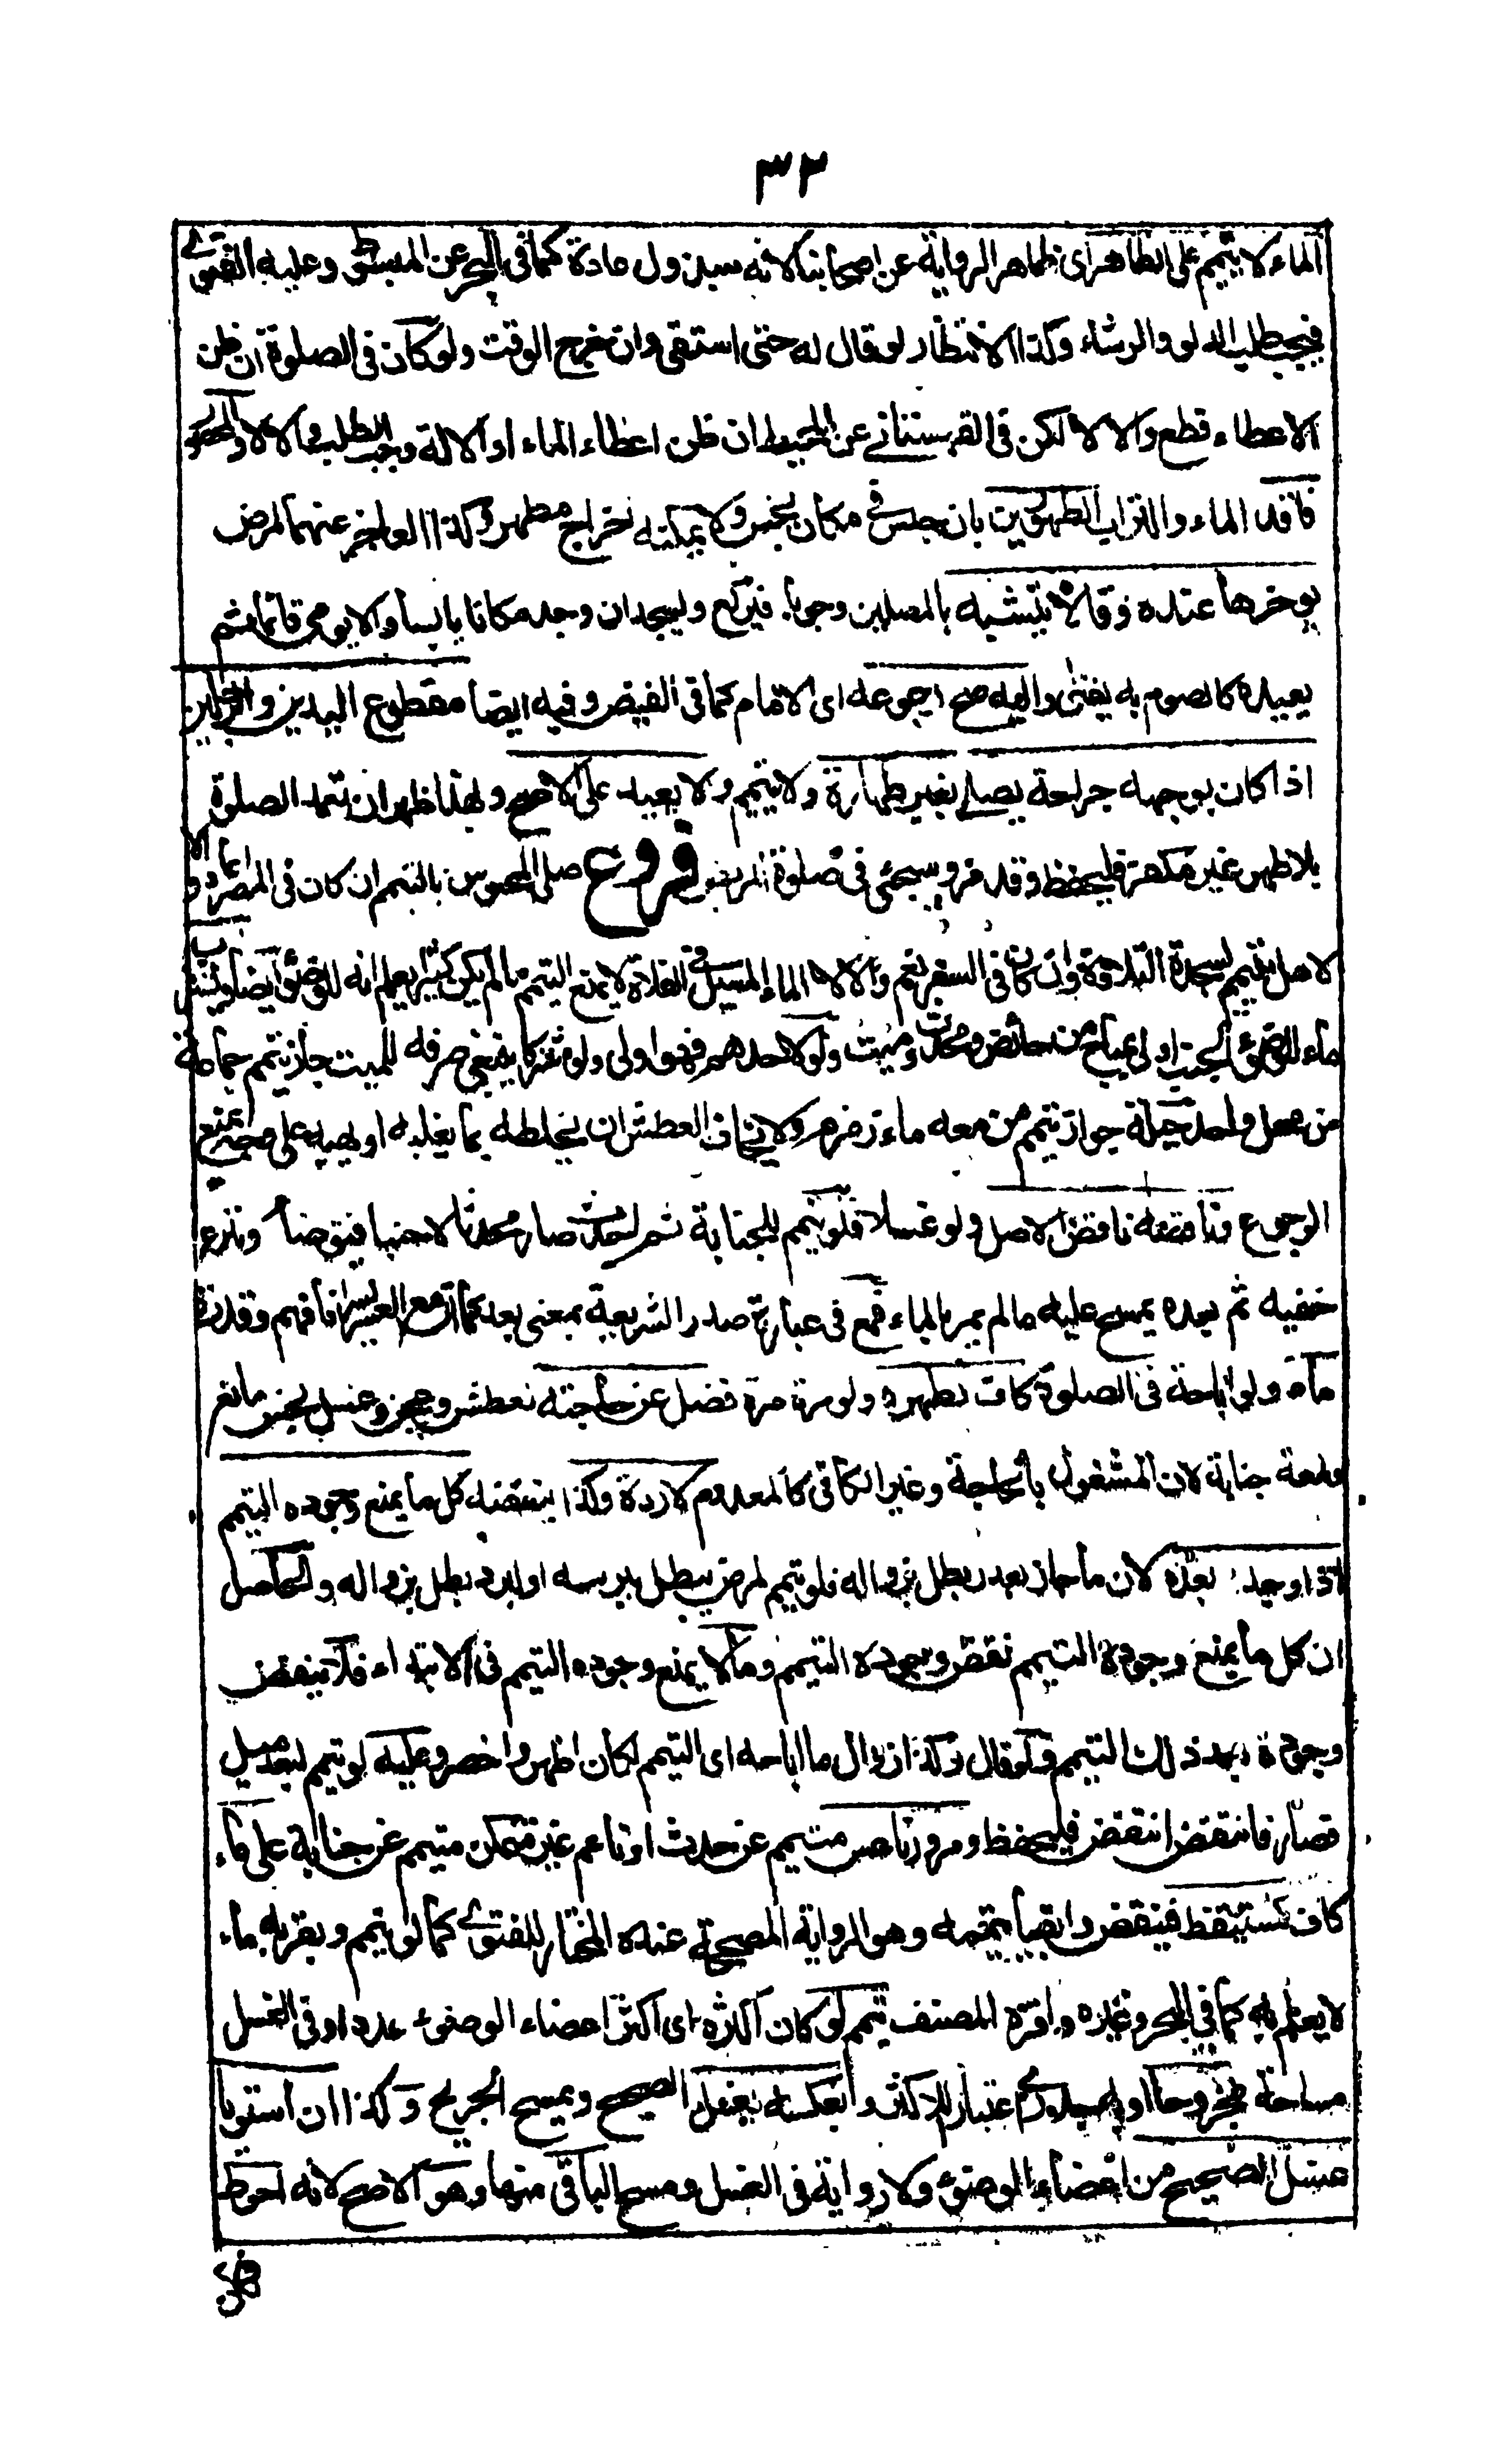 ٣٣
الماء لا يتيمم على الظاهر اى ظاهر الرواية عن اصحابنا لانه مبذول عادة كما فى البحر عن المبسوط وعليه الفتوى
فيجب طلب الدلو والرشاء وكذا الانتظار لو قال له حتى استقى وان خرج الوقت ولو كان فى الصلوة ان ظن
الاعطاء قطع والا لا لكن فى القهستانى عن المحيط ان ظن اعطاء الماء او الالة وجب الطلب والا لا والمحصور
فاقد الماء والتراب الطهورين بان حبس فى مكان نجس ولا يمكنه اخراج مطهر وكذا العاجز عنهما لمرض
يوخرها عنده وقالا يتشبه بالمصلين وجوبا فيركع ويسجد ان وجد مكانا يابسا والا يومى قائما ثم
يعيد كالصوم به يفتى واليه صح رجوعه اى الامام كما فى الفيض وفيه ايضا مقطوع اليدين والرجلين
اذا كان بوجهه جراحة يصلى بغير طهارة ولا يتيمم ولا يعيد على الاصح وبهذا ظهر ان تعمد الصلوة
بلا طهر غير مكفر فليحفظ وقد مر وسيجئ فى صلوة المريض فروع صلى المحبوس بالتيمم ان كان فى المصر اعاد والا
لا هل يتيمم لسجدة التلاوة وان كان فى السفر نعم والا لا الماء المسبل فى الفلاة لا يمنع التيمم مالم يكن كثيرا يعلم انه للوضوء ايضا ويشرب
ماء للوضوء الجنب اولى بمباح من حائض ومحدث وميت ولو لاحدهم فهو اولى ولو مشتركا ينبغى صرفه للميت جاز تيمم جماعة
من محل واحد حيلة جواز تيمم من معه ماء زمزم ولا يخاف العطش ان يخلطه بما يغلبه او يهبه على وجه يمنع
الرجوع وناقضه ناقض الاصل ولو غسلا فلو تيمم للجنابة ثم احدث صار محدثا لا جنبا فيتوضأ وينزع
خفيه ثم بعده يمسح عليه مالم يمر بالماء فمع فى عبارة صدر الشريعة بمعنى بعد كما ان مع العسر يسرا فافهم وقدرة
ماء ولو اباحة فى الصلوة كاف لطهره ولو مرة مرة فضل عن حاجته لعطش وعجن وغسل نجس مانع
ولمعة جنابة لان المشغول بالحاجة وغير الكافى كالمعدوم لا ردة وكذا ينقضه كل ما يمنع وجوده التيمم
اذا وجد بعده لان ما جاز بعذر بطل بزواله فلو تيمم لمرض بطل ببرئه او لبرد بطل بزواله والحاصل
ان كل ما يمنع وجوده التيمم نقض وجوده التيمم وما لا يمنع وجوده التيمم فى الابتداء فلا ينقض
وجوده بعد ذلك التيمم ولو قال وكذا زوال ما اباحه اى التيمم لكان اظهر واخصر وعليه لو تيمم لبعد ميل
فسار فانتقض انتقض فليحفظ ومرور ناعس متيمم عن حدث او نائم غير متمكن متيمم عن جنابة على ماء
كاف كمستيقظ فينتقض وابقيا تيممه وهو الرواية المصححة عنده المختار للفتوى كما لو تيمم وبقربه ماء
لا يعلم به كما فى البحر وغيره واقره المصنف تيمم لو كان اكثره اى اكثر اعضاء الوضوء عددا وفى الغسل
مساحة مجروحا او به جدرى اعتبارا للاكثر وبعكسه يغسل الصحيح ويمسح الجريح وكذا ان استويا
غسل الصحيح من اعضاء الوضوء ولا رواية فى الغسل ومسح الباقى منها وهو الاصح لانه احوط